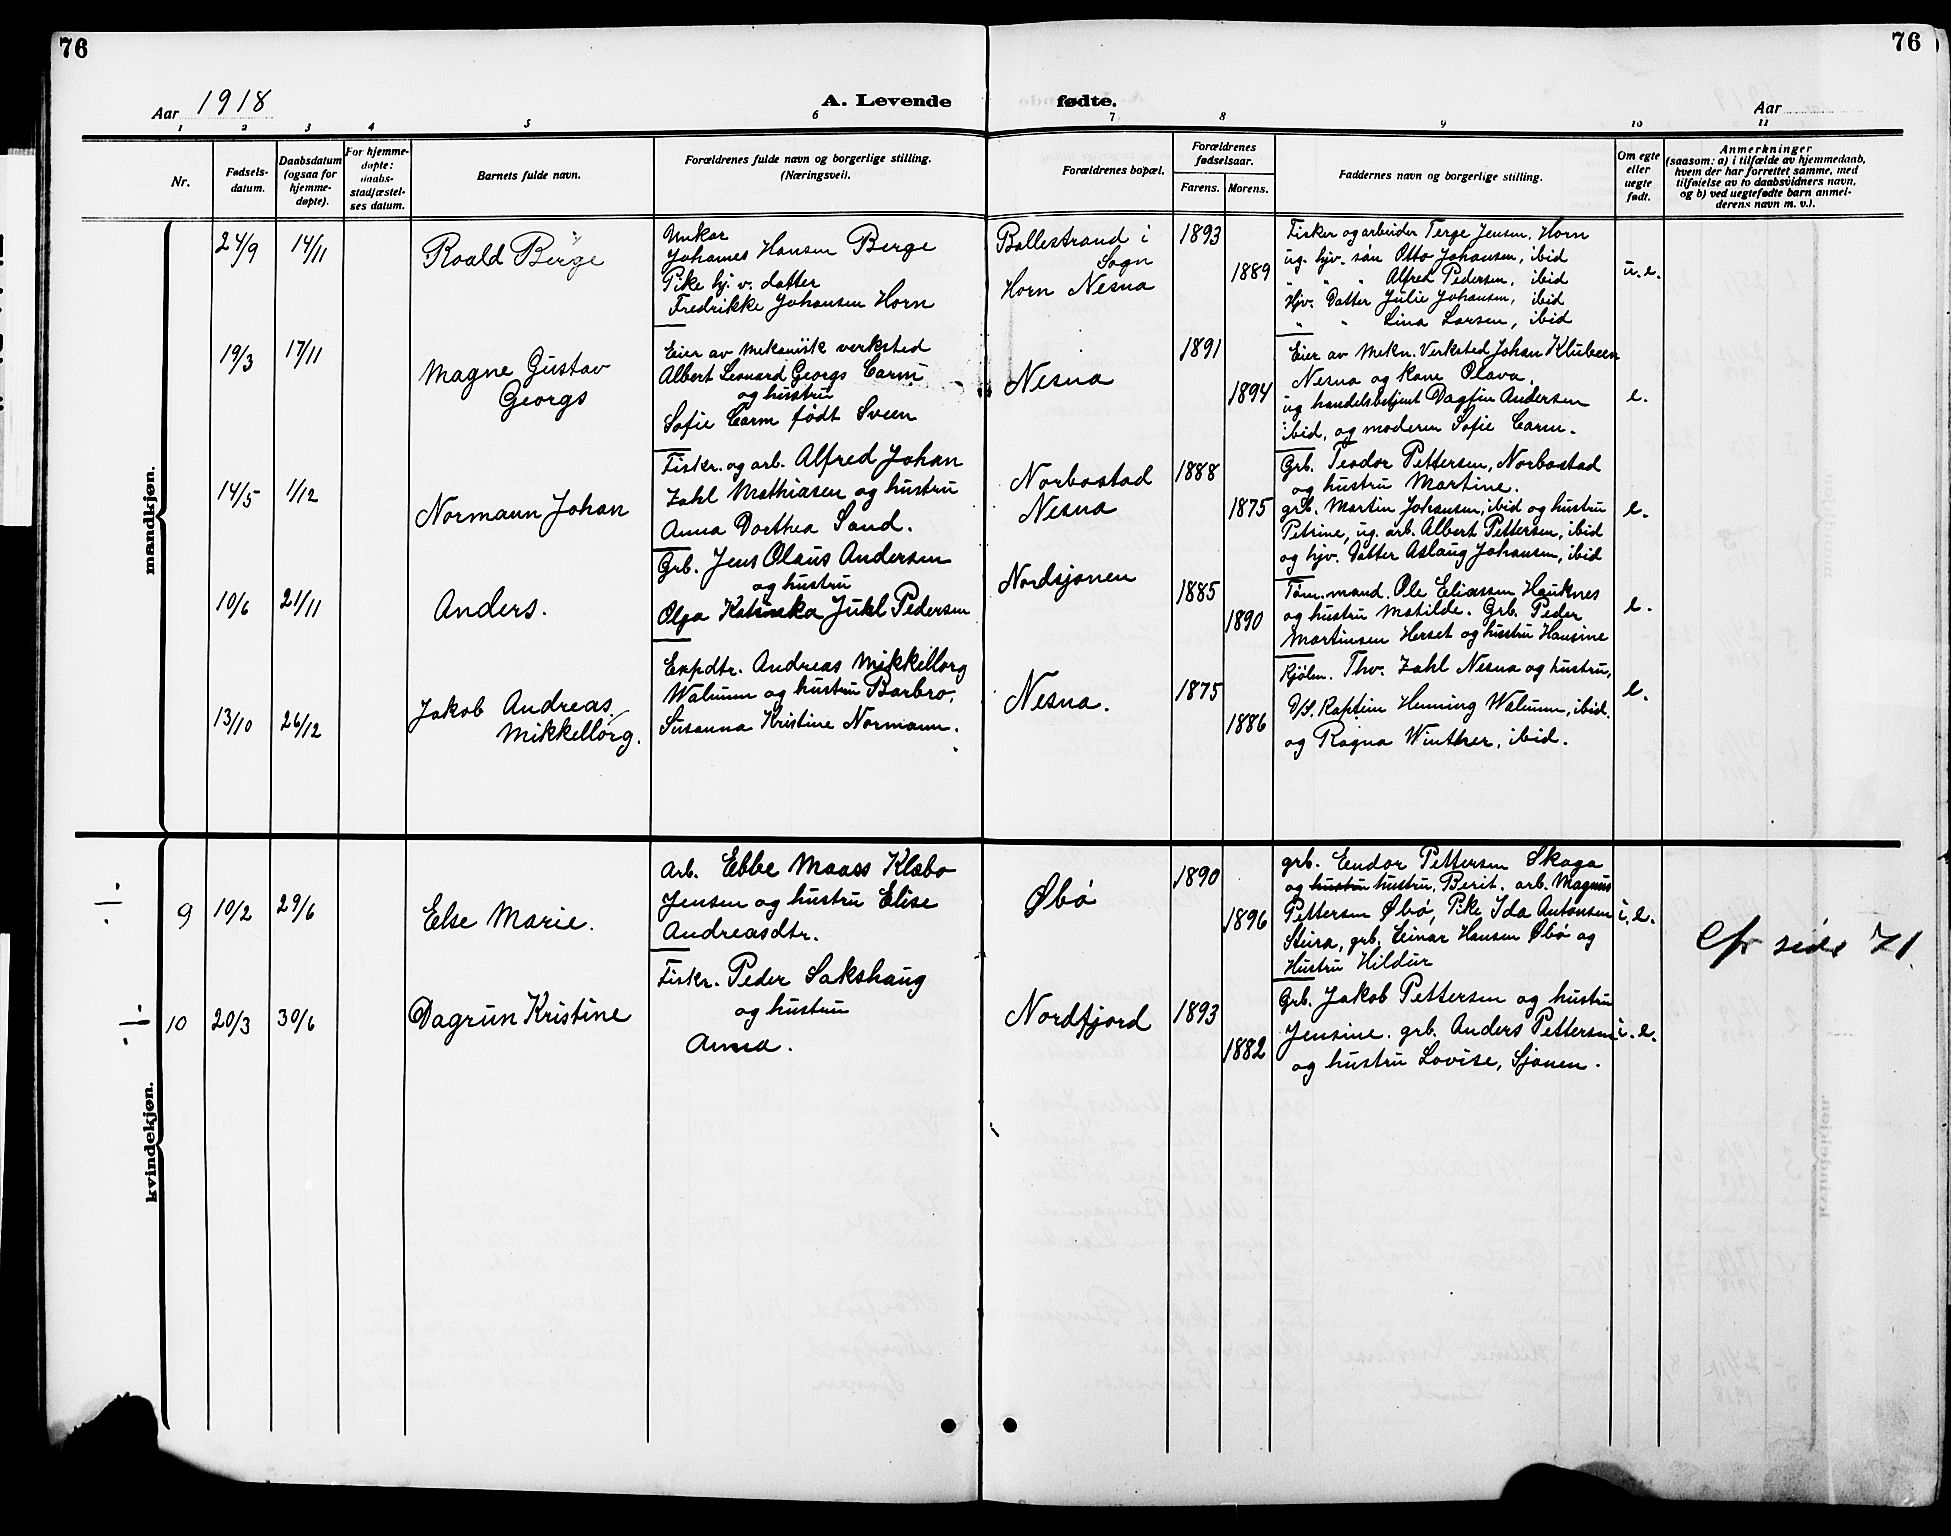 76
76
Aar 1918
A. Levende fødte.
Aar
1 2 3 4 5 6 7 8 9 10 11
Nr.
Fødsels-
datum.
Daabsdatum
(ogsaa for
hjemme-
døpte).
For hjemme-
døpte:
daabs-
stadfæstel-
ses datum.
Barnets fulde navn.
Forældrenes fulde navn og borgerlige stilling.
(Næringsvei.)
Forældrenes bopæl.
Forældrenes
fødselsaar.
Farens. Morens.
Faddernes navn og borgerlige stilling.
Om egte
eller
uegte
født.
Anmerkninger
(saasom: a) i tilfælde av hjemmedaab,
hvem der har forrettet samme, med
tilføielse av to daabsvidners navn,
og b) ved uegtefødte barn anmel-
derens navn m. v.).
mandkjøn.
24/9 14/11
Roald Berge
Johannes Hansen Berge
Pike hj. v. datter
Fredrikke Johansen Horn
Ballestrand i
Sogn
Horn Nesna
1893
1889
Fisker og arbeider Terge Jensen, Horn
ug. hjv. søn Otto Johansen, ibid
" " " Alfred Pedersen, ibid
Hjv. Datter Julie Johansen, ibid
" " Lina Larsen, ibid
u. e.
19/3 17/11
Magne Gustav
Georgs
Eier av mekanisk verksted
Albert Leonard Georgs Carm
og hustru
Sofie Carm født Sveen
Nesna
1891
1894
Eier av Mekn. Verksted Johan Klubeen
Nesna og kone Olava.
ug handelsbetjent Dagfin Andersen
ibid, og moderen Sofie Carm.
e.
14/5 1/12
Normann Johan
Fiskr. og arb. Alfred Johan
Zahl Mathiasen og hustru
Anna Dorthea Sand.
Norbostad
Nesna
1888
1875
Grb. Teodor Pettersen, Norbostad
og hustru Martine.
grb. Martin Johansen, ibid og hustru
Petrine, ug. arb. Albert Pettersen, ibid
og hjv. Datter Aslaug Johansen, ibid
e.
10/6 21/11
Anders.
Grb. Jens Olaus Andersen
og hustru
Olga Katinka Jukl Pedersen
Nordsjonen
1885
1890
Tøm. mand. Ole Eliassen Hauknes
og hustru Matilde. Grb. Peder
Martinsen Herset og hustru Hansine
e.
13/10 26/12
Jakob Andreas
Mikkelborg.
Expdtr. Andreas Mikkelborg
Walnum og hustru Barbro,
Susanna Kristine Normann.
Nesna.
1875
1886
Kjølm. Thv. Zahl Nesna og hustru,
D/S. Kaptein Henning Walnum, ibid.
og Ragna Winther, ibid.
e.
kvindekjøn.
÷ 9 10/2 29/6
Else Marie.
Arb. Ebbe Maass Klæbo
Jensen og hustru Elise
Andreasdtr.
Øbø
1890
1896
grb. Endor Pettersen Skaga
og hustru hustru, Berit. arb. Magnus
Pettersen Øbø, Pike Ida Antonsen
Stura, grb. Einar Hansen Øbø og
Hustru Hildur
i. e.
Cfr side 71.
÷ 10 20/3 30/6
Dagrun Kristine
Fiskr. Peder Sakshaug
og hustru
Anna.
Nordfjord
1893
1882
Grb. Jakob Pettersen og hustru
Jensine. grb. Anders Pettersen
og hustru Lovise, Sjonen.
i. e.